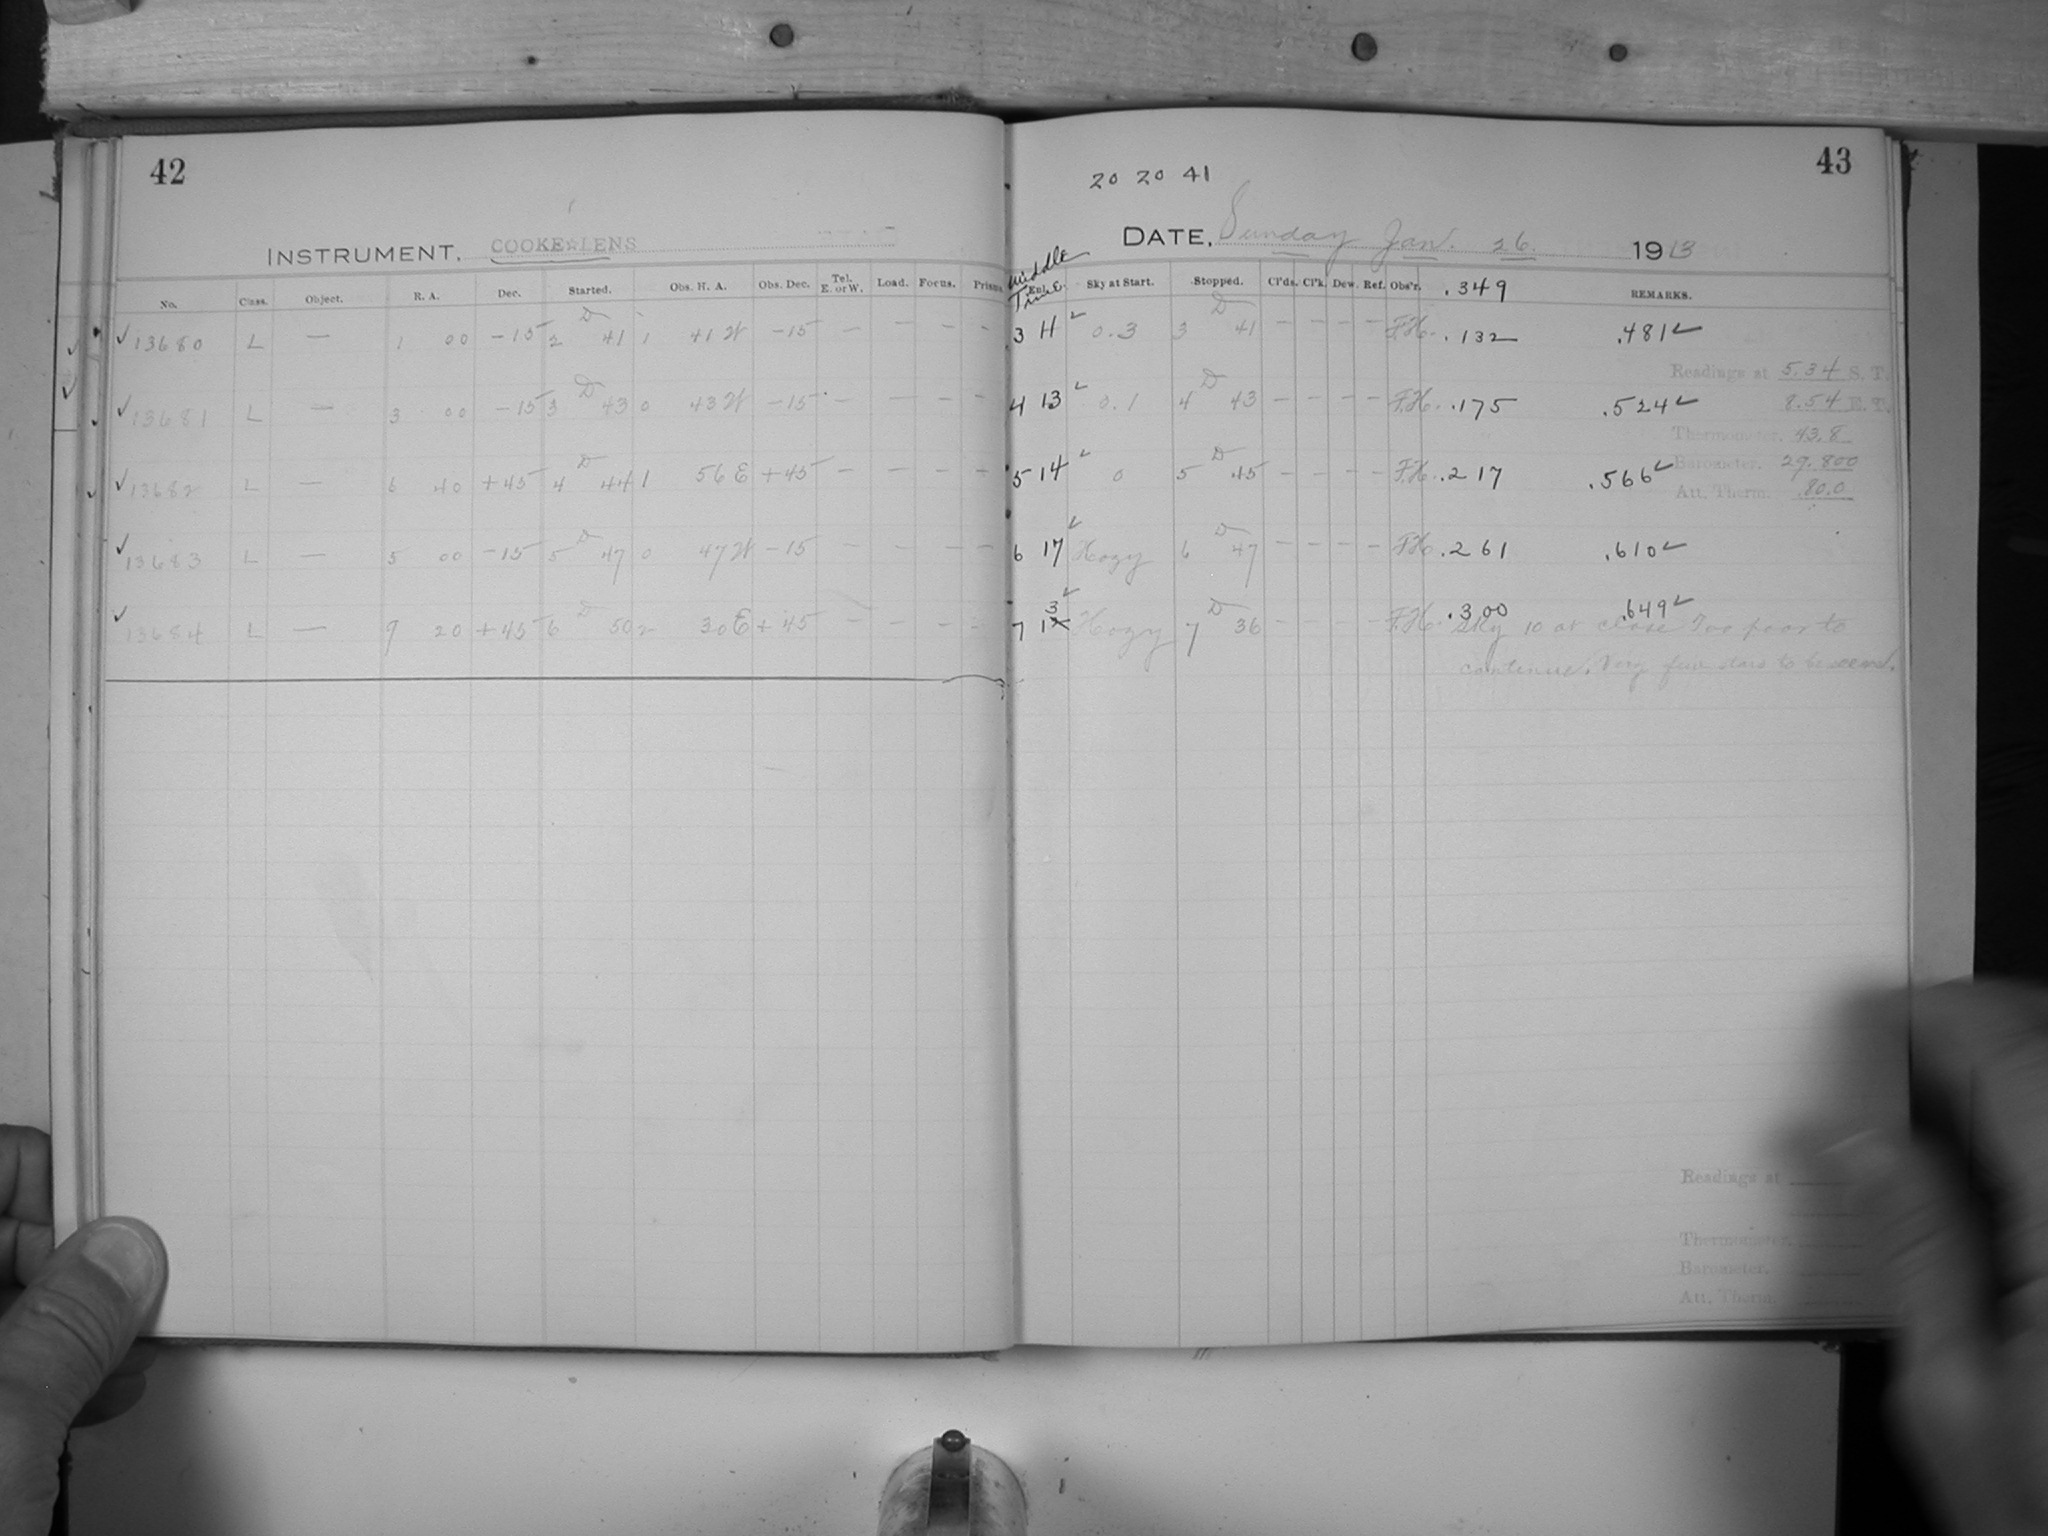 42
INSTRUMENT. COOKE☆LENS
No. Class. Object. R. A. Dec. Started. Obs. H. A. Obs. Dec. Tel. E. or W. Load. Focus. Prisms.
✓ 13680 L — 1 00 -15 2 D 41 1 41 W -15 — — — —
✓ 13681 L — 3 00 -15 3 D 43 0 43 W -15 — — — —
✓ 13682 L — 6 40 +45 4 D 44 1 56 E +45 — — — —
✓ 13683 L — 5 00 -15 5 D 47 0 47 W -15 — — — —
✓ 13684 L — 9 20 +45 6 D 50 2 30 E +45 — — — —
43
20 20 41
DATE, Sunday Jan. 26. 1913
Middle Time Enl. Sky at Start. Stopped. Cl'ds. Cl'k. Dew. Ref. Obs'r. .349 REMARKS.
3 11 ✓ 0.3 3 D 41 — — — — F.H. .132 .481 ✓
Readings at 5.34 S. T.
4 13 ✓ 0.1 4 D 43 — — — — F.H. .175 .524 ✓ 8.54 E. T.
Thermometer. 43.8
Barometer. 29.800
5 14 ✓ 0 5 D 45 — — — — F.H. .217 .566 ✓
Att. Therm. 80.0
6 17 ✓ Hazy 6 D 47 — — — — F.H. .261 .610 ✓
7 13 ✓ Hazy 7 D 36 — — — — F.H. .300 .649 ✓
Sky 10 at close Too poor to
continue. Very few stars to be seen.
Readings at
Thermometer.
Barometer.
Att. Therm.